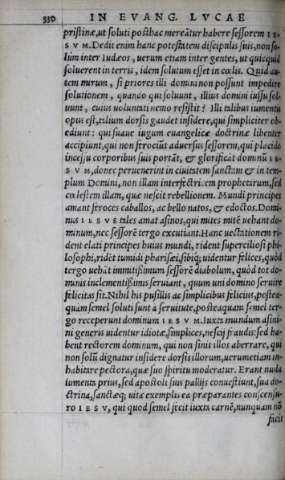 330 IN EVANG. LVCAE
pristinæ, ut soluti posthac mereātur habere sessorem IE-
SVM. Dedit enim hanc potestatem discipulis suis, non so-
lum inter Iudæos, uerum etiam inter gentes, ut quicquid
soluerent in terris, idem solutum esset in cœlis. Quid au-
tem mirum, si priores illi domini non possunt impedire
solutionem, quando qui soluunt, illius domini iussu sol-
uunt, cuius uoluntati nemo resistit? Illi talibus iumentis
opus est, talium dorsis gaudet insidere, qui simpliciter ob-
ediunt: qui suaue iugum euangelicæ doctrinæ libenter
accipiunt, qui non ferociūt aduersus sessorem, qui placido
incessu corporibus suis portāt, & glorificāt dominū IE-
SVM, donec peruenerint in ciuitatem sanctam & in tem-
plum Domini, non illam interfectricem prophetarum, sed
cœlestem illam, quæ nescit rebellionem. Mundi principes
amant feroces caballos, ac bello natos, & edoctos. Domi-
nus IESVS tales amat asinos, qui mites mitē uehant do-
minum, nec sessorē tergo excutiant. Hanc uectationem ri-
dent elati principes huius mundi, rident superciliosi phi-
losophi, ridēt tumidi pharisæi, sibiq; uidentur felices, quòd
tergo uehāt immitissimum sessorē diabolum, quòd tot do-
minis inclementissimis seruiant, quum uni domino seruire
felicitas sit. Nihil his pusillis ac simplicibus felicius, postea-
quam semel soluti sunt à seruitute, posteaquam semel ter-
go receperunt dominum IESVM. Iuxta mundum asini-
ni generis uidentur idiotæ, simplices, nescij fraudis: sed ha-
bent rectorem dominum, qui non sinit illos aberrare, qui
non solū dignatur insidere dorsis illorum, uerumetiam in-
habitare pectora, quæ suo spiritu moderatur. Erant nuda
iumentis prius, sed apostoli suis pallijs conuestiunt, sua do-
ctrina, sanctæq; uitæ exemplis ea præparantes conscensu-
ro IESV, qui quod semel fecit iuxta carnē, nunquam nō
facit